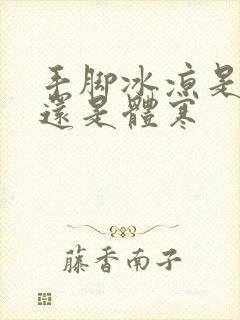 手脚冰凉是
還是體寒
藤香南子